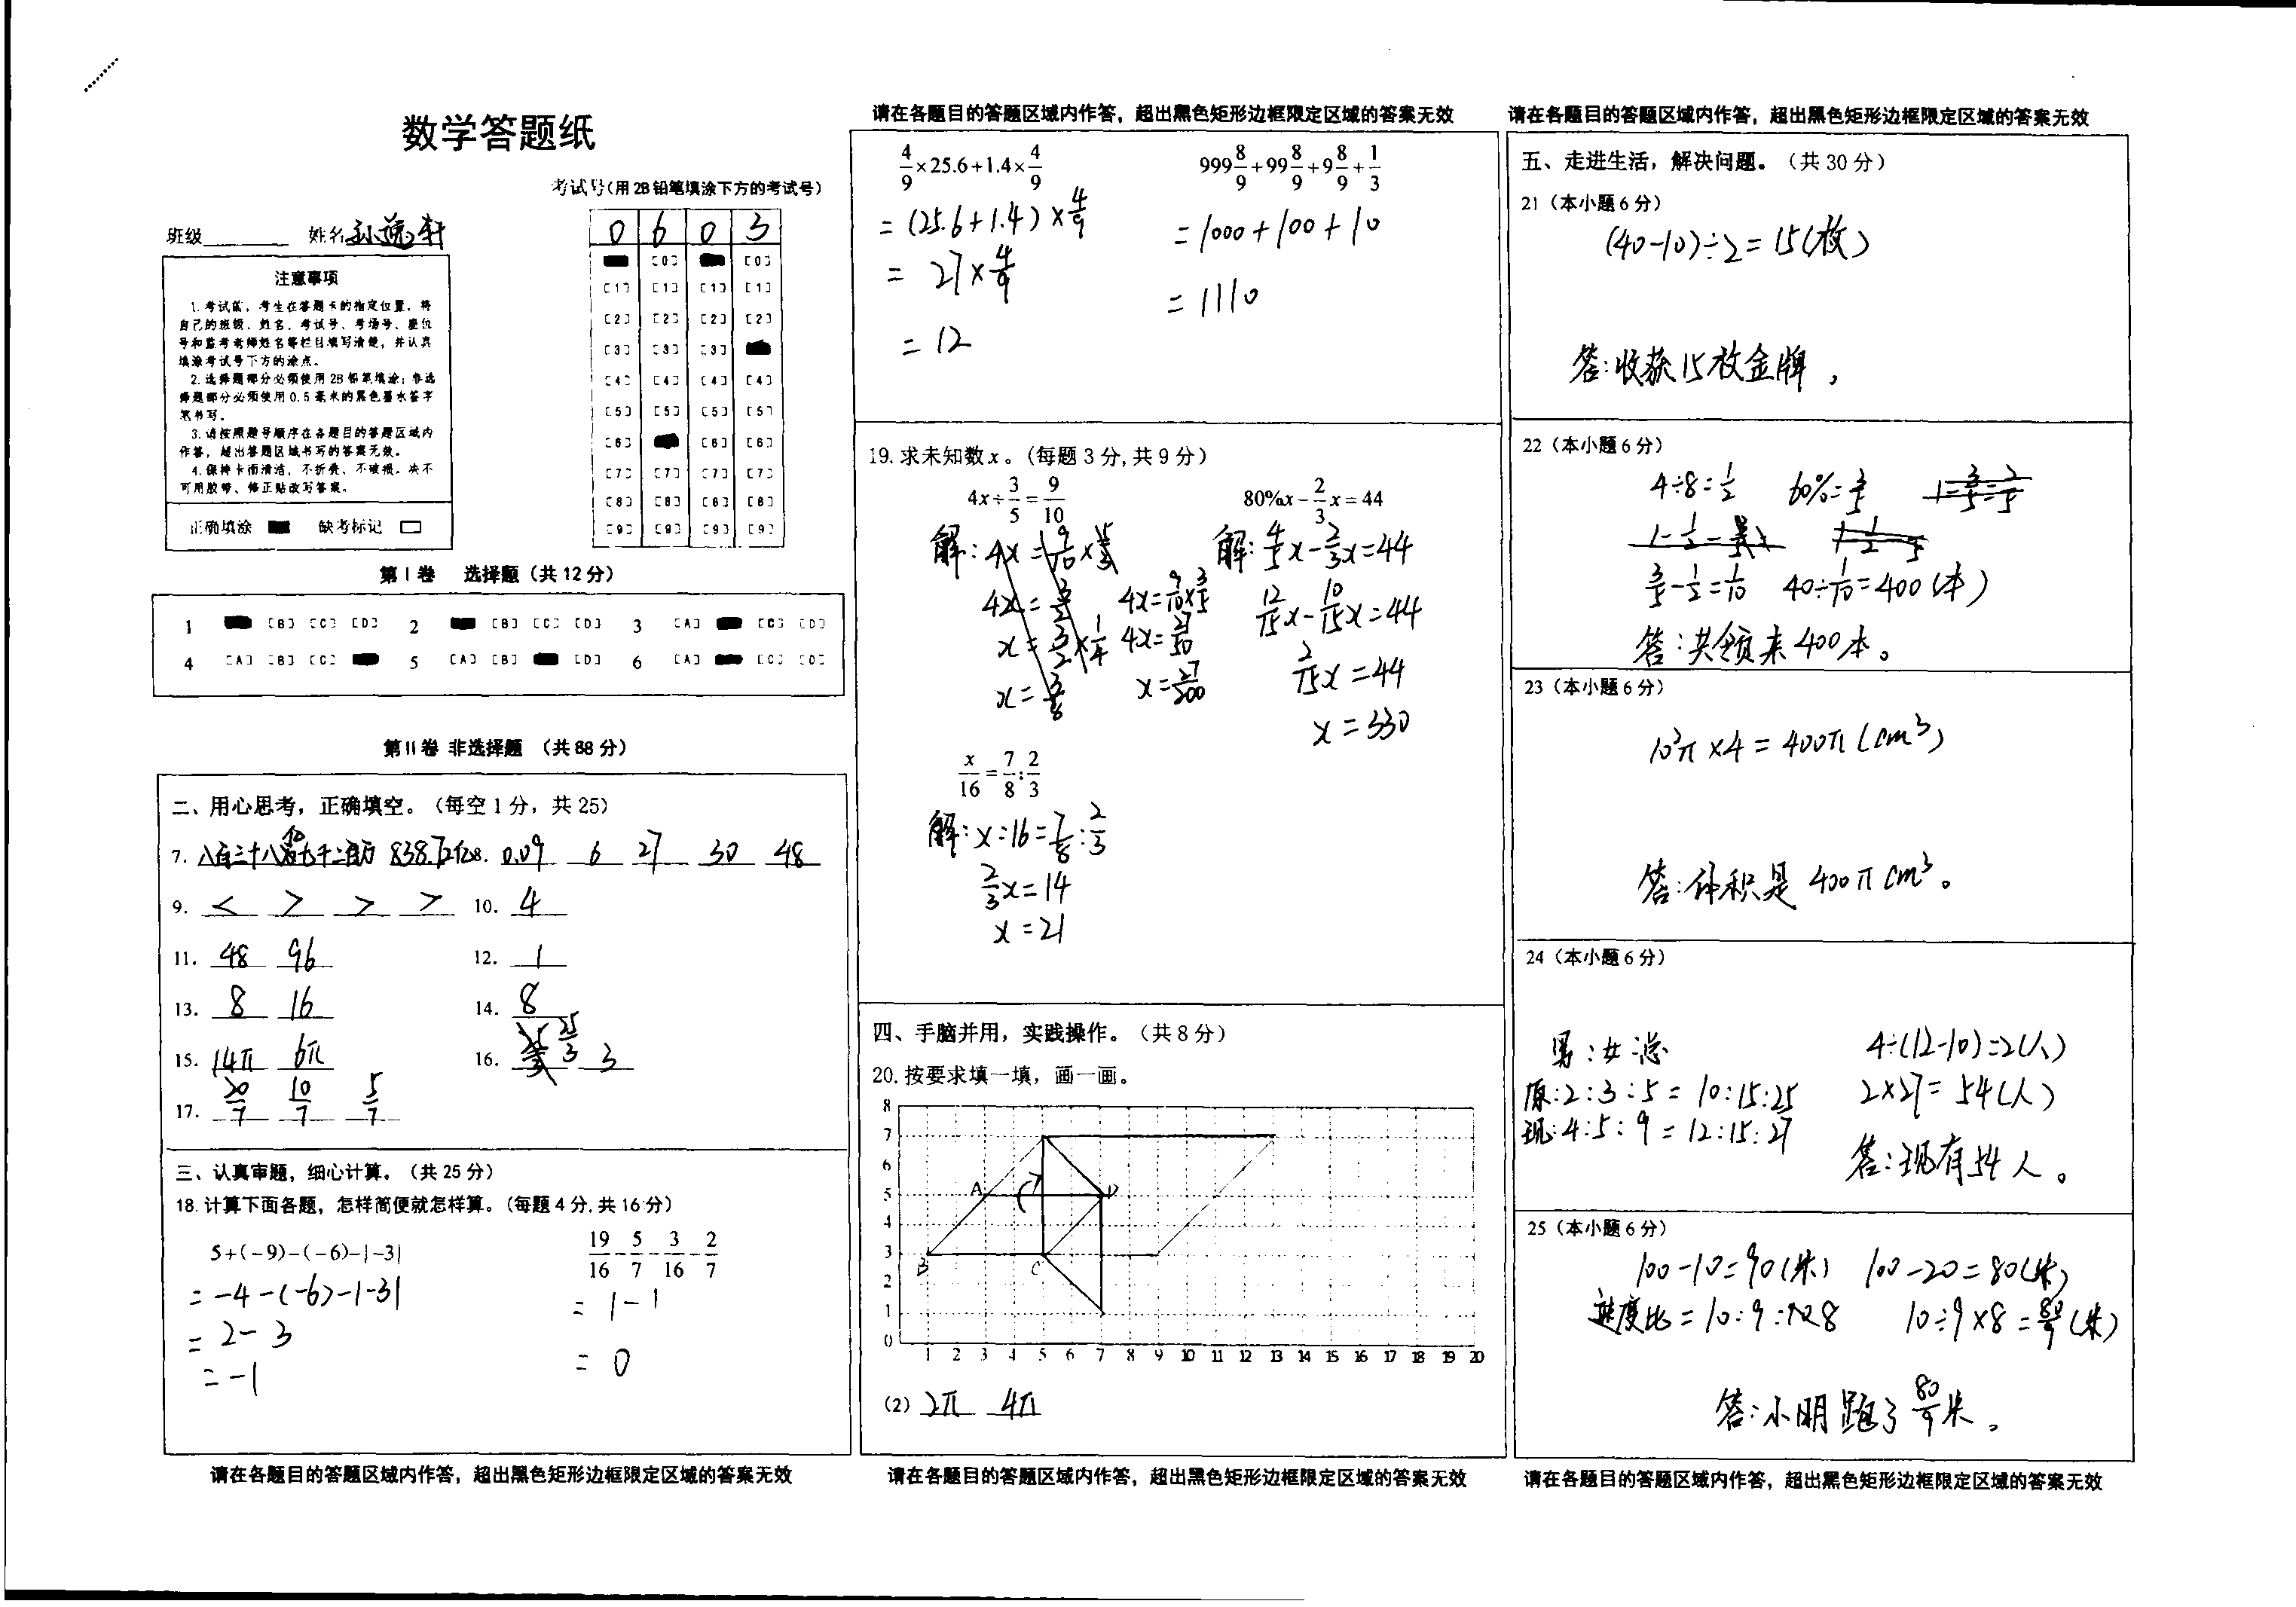 数学答题纸
考试号(用 2B 铅笔填涂下方的考试号)
班级 姓名 孙逸轩
0 6 0 3
[0] [0]
[1] [1] [1] [1]
[2] [2] [2] [2]
[3] [3] [3]
[4] [4] [4] [4]
[5] [5] [5] [5]
[6] [6] [6]
[7] [7] [7] [7]
[8] [8] [8] [8]
[9] [9] [9] [9]
注意事项
1.考试前,考生在答题卡的指定位置,将
自己的班级、姓名、考试号、考场号、座位
号和监考老师姓名等栏目填写清楚,并认真
填涂考试号下方的涂点。
2.选择题部分必须使用 2B 铅笔填涂;非选
择题部分必须使用 0.5 毫米的黑色墨水签字
笔书写。
3.请按照题号顺序在各题目的答题区域内
作答,超出答题区域书写的答案无效。
4.保持卡面清洁,不折叠、不破损。决不
可用胶带、修正贴改写答案。
正确填涂 缺考标记
第 I 卷 选择题(共 12 分)
1 [B] [C] [D] 2 [B] [C] [D] 3 [A] [C] [D]
4 [A] [B] [C] 5 [A] [B] [D] 6 [A] [C] [D]
第 II 卷 非选择题 (共 88 分)
二、用心思考,正确填空。(每空 1 分,共 25)
7. 838.72亿 8. 0.09 6 27 30 48
9. < > > > 10. 4
11. 48 96 12. 1
13. 8 16 14. 8
15. 14π 6π 16. 25/3 3
17. 20/7 10/7 5/7
三、认真审题,细心计算。(共 25 分)
18.计算下面各题,怎样简便就怎样算。(每题 4 分,共 16 分)
5+(-9)-(-6)-|-3| 19/16-5/7-3/16-2/7
=-4-(-6)-|-3| =1-1
=2-3 =0
=-1
请在各题目的答题区域内作答,超出黑色矩形边框限定区域的答案无效
请在各题目的答题区域内作答,超出黑色矩形边框限定区域的答案无效
4/9×25.6+1.4×4/9 999 8/9+99 8/9+9 8/9+1/3
=(25.6+1.4)×4/9 =1000+100+10
=27×4/9 =1110
=12
19.求未知数 x 。(每题 3 分,共 9 分)
4x÷3/5=9/10 80%x-2/3x=44
解:4x=9/10×5/3 解:4/5x-2/3x=44
4x=3/2 4x=9/10×3/5 12/15x-10/15x=44
x=3/2×1/4 4x=27/50 2/15x=44
x=3/8 x=27/200 x=330
x/16=7/8:2/3
解:x:16=7/8:2/3
2/3x=14
x=21
四、手脑并用,实践操作。(共 8 分)
20.按要求填一填,画一画。
8
7
6
5 A D
4
3 B C
2
1
0 1 2 3 4 5 6 7 8 9 10 11 12 13 14 15 16 17 18 19 20
(2) 2π 4π
请在各题目的答题区域内作答,超出黑色矩形边框限定区域的答案无效
请在各题目的答题区域内作答,超出黑色矩形边框限定区域的答案无效
五、走进生活,解决问题。(共 30 分)
21(本小题 6 分)
(40-10)÷2=15(枚)
答:收获15枚金牌,
22(本小题 6 分)
4÷8=1/2 60%=3/5 1-3/5=2/5
3/5-1/2=1/10 40÷1/10=400(本)
答:共领来400本。
23(本小题 6 分)
10²π×4=400π(cm³)
答:体积是400πcm³。
24(本小题 6 分)
男:女:总 4÷(12-10)=2(人)
原:2:3:5=10:15:25 2×27=54(人)
现:4:5:9=12:15:27
答:现有54人。
25(本小题 6 分)
100-10=90(米) 100-20=80(米)
速度比=10:9:8 10÷9×8=80/9(米)
答:小明跑了80/9米。
请在各题目的答题区域内作答,超出黑色矩形边框限定区域的答案无效